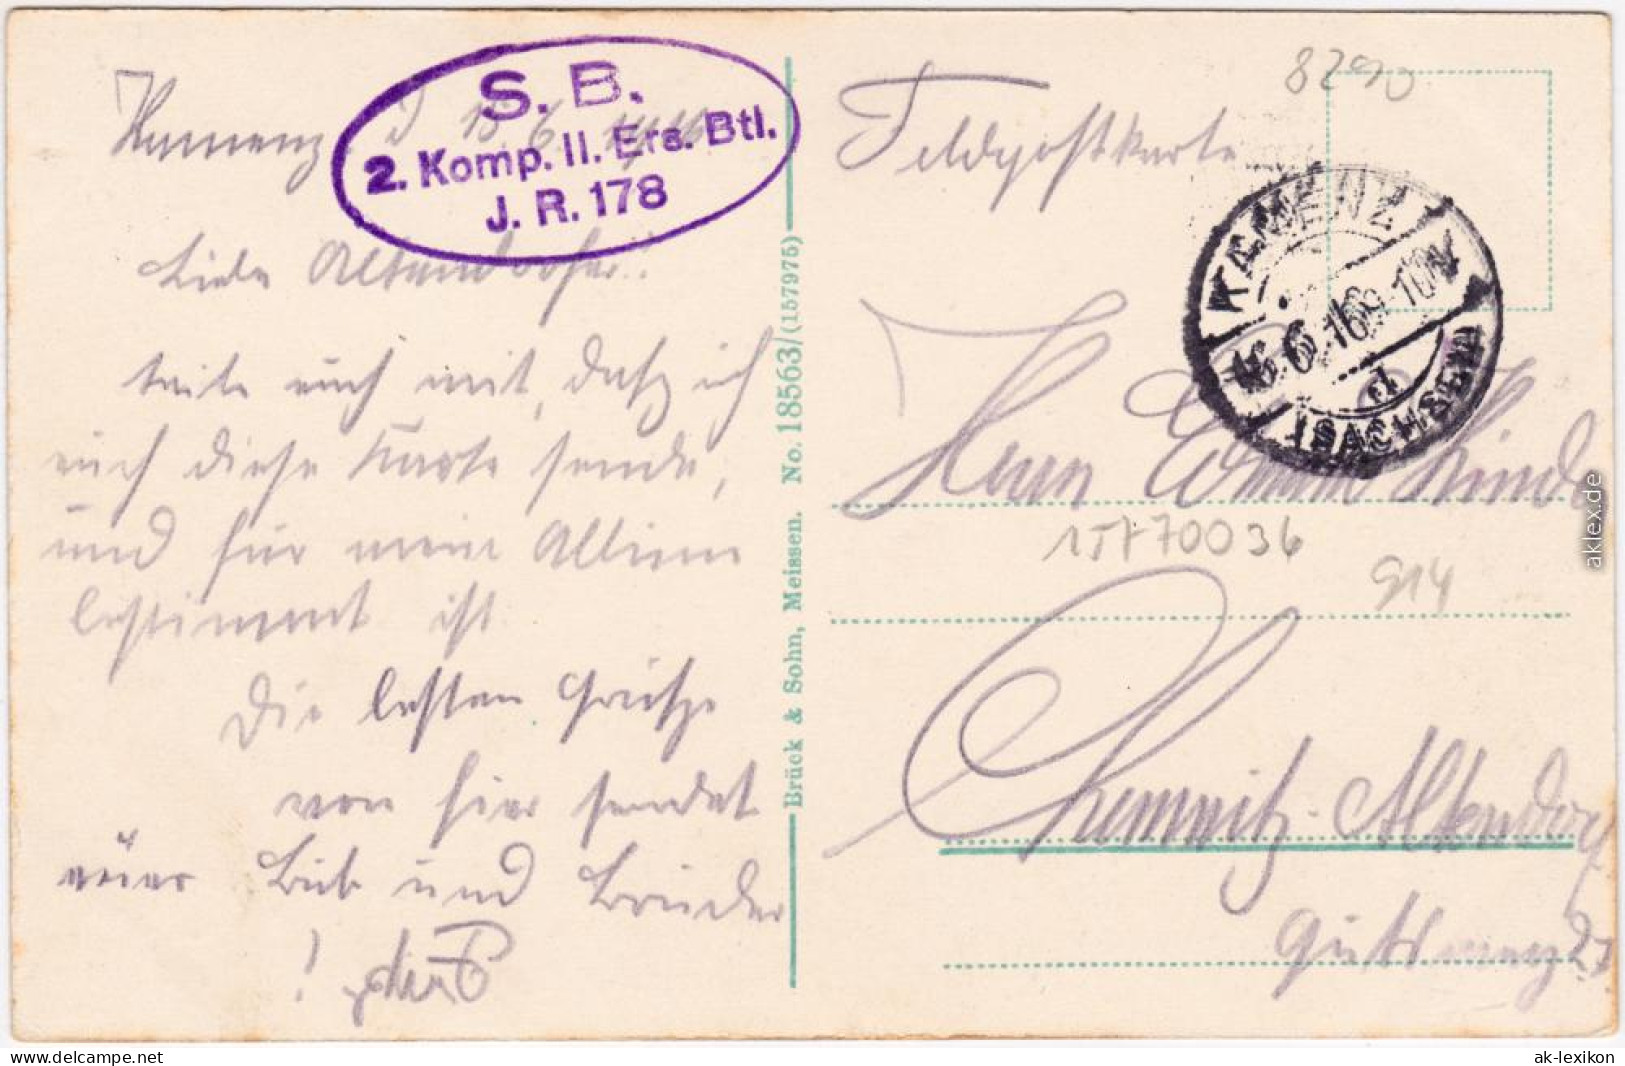 Kamenz d 15. 6. 1916
S. B.
2. Komp. II. Ers. Btl.
J. R. 178
Liebe Altendorfer!!
teile euch mit, daß ich
euch diese Karte sende,
und für mein Album
bestimmt ist.
Die besten Grüße
von hier sendet
euer Bub und Bruder
!
Brück & Sohn, Meissen. No. 18563/(157975)
Feldpostkarte
8290
KAMENZ
16.6.16 9-10V
d
(SACHSEN)
Herrn Kind
15770036
914
Chemnitz-Altendorf
27
aklex.de
https://www.delcampe.net
ak-lexikon